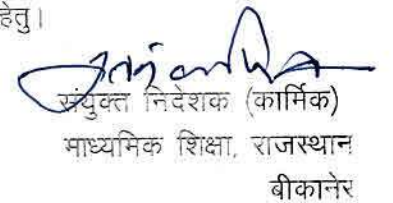 हेतु।
संयुक्त निदेशक (कार्मिक)
माध्यमिक शिक्षा, राजस्थान
बीकानेर